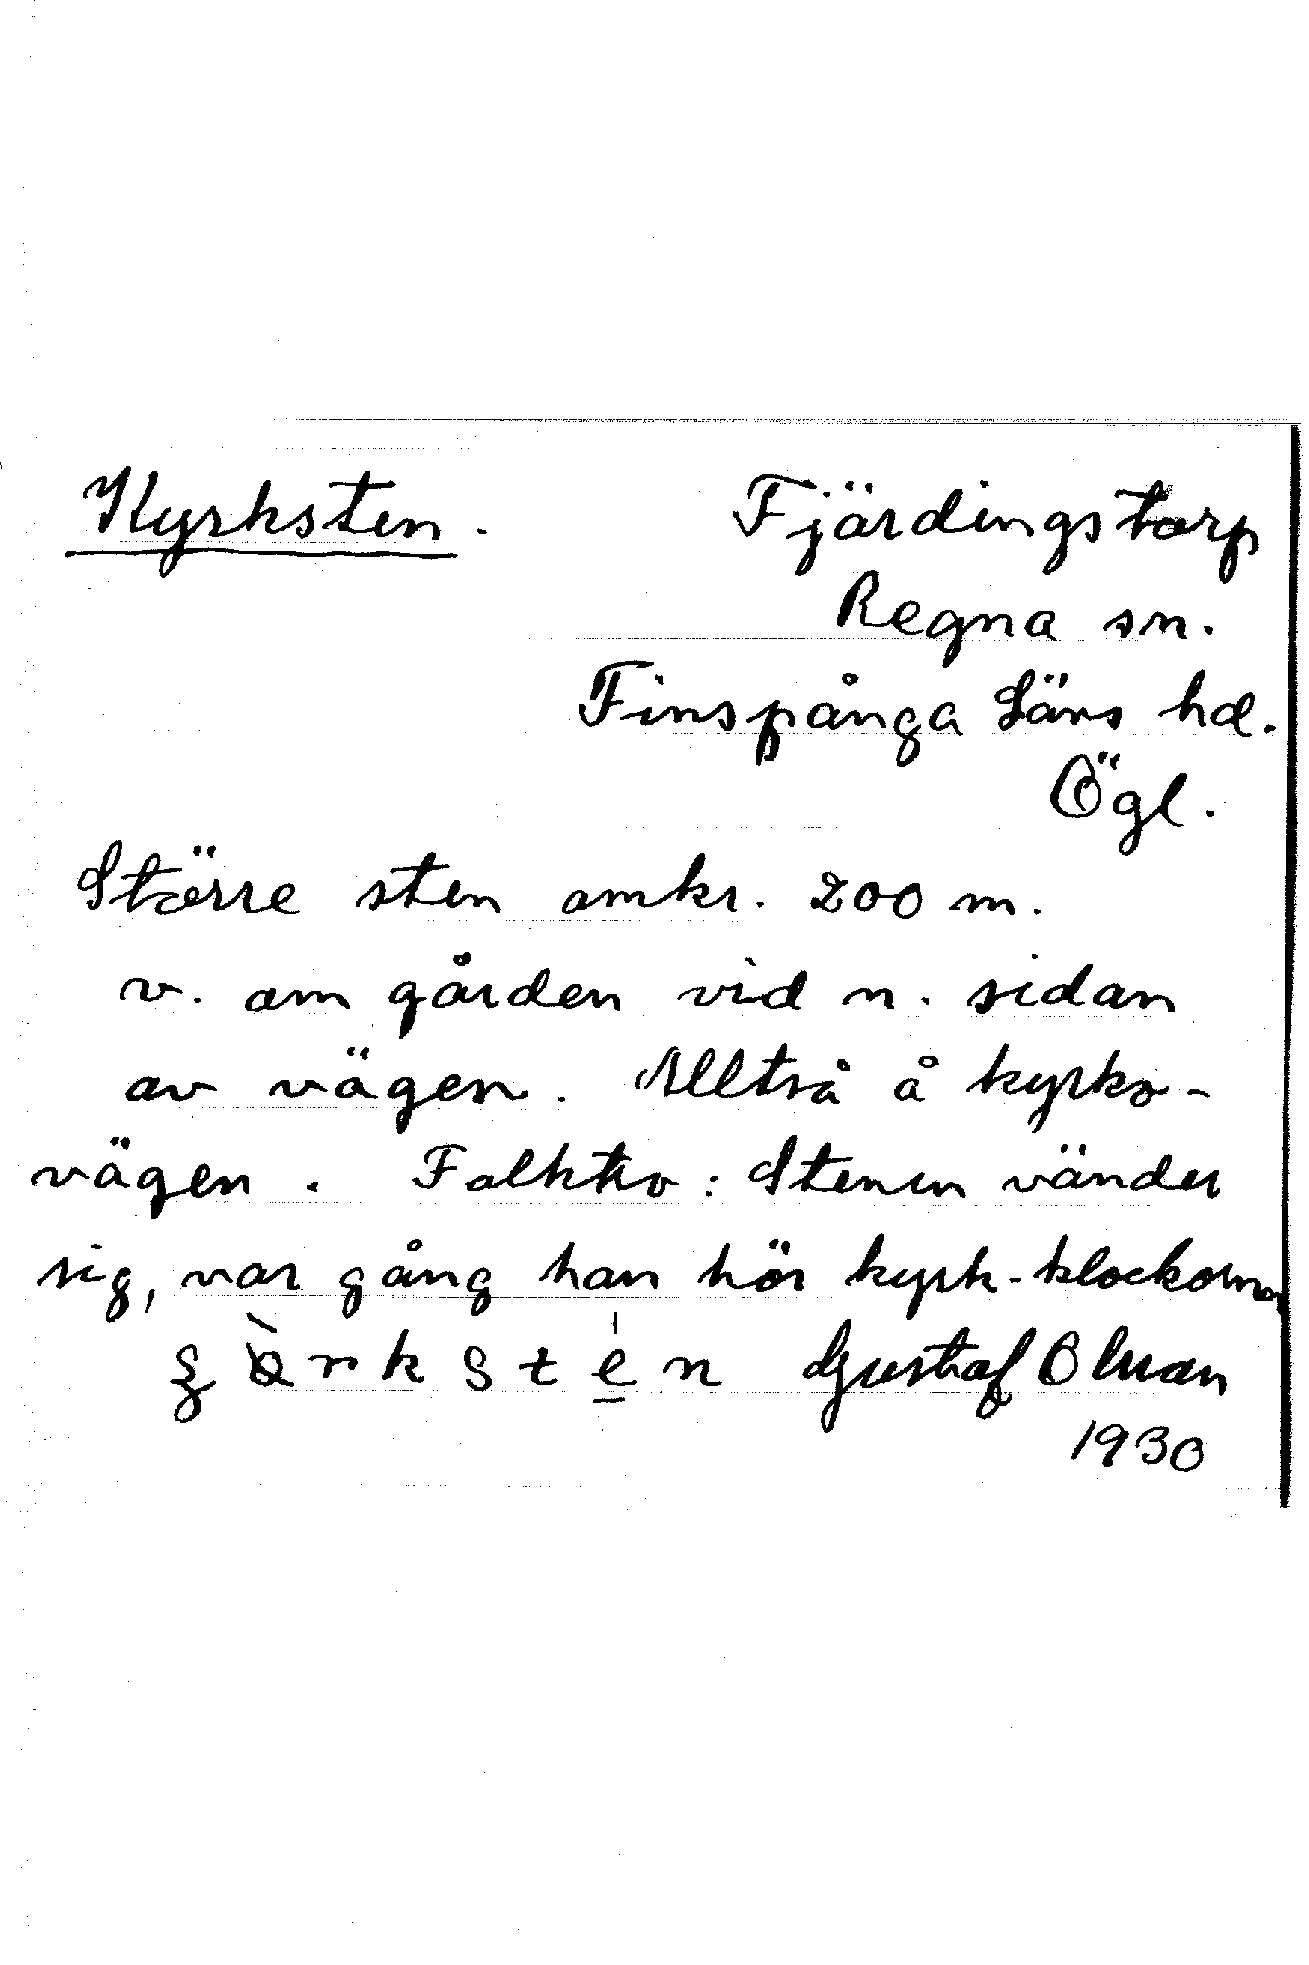 Kyrksten. Fjärdingstorp
Regna sn.
Finspånga Läns hd.
Ögl.
Större sten omkr. 200 m.
v. om gården vid n. sidan
av vägen. Alltså å kyrko-
vägen. Folktro: Stenen vänder
sig, var gång han hör kyrk-klockorna
Gustaf Olman
1930